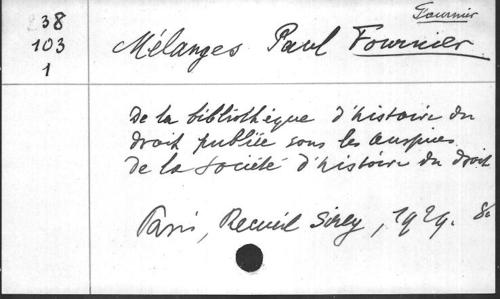 Fournier
38
103
1
Mélanges Paul Fournier
De la bibliothèque d'histoire du
droit publiée sous les auspices
de la Société d'histoire du droit
Paris, Recueil Sirey, 1929. 8o